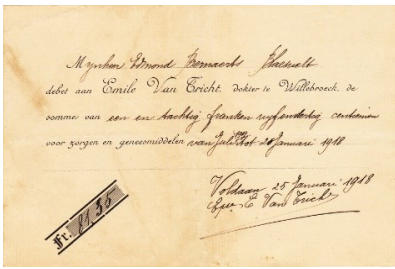 Mynheer Edmond Bernaerts Blaesvelt
debet aan Emile Van Tricht, dokter te Willebroeck, de
somme van een en tachtig franken vyfendertig centiemen
voor zorgen en geneesmiddelen van Juli tot 20 Januari 1918
Voldaan 25 Januari 1918
E Van Tricht
Fr. 81,35